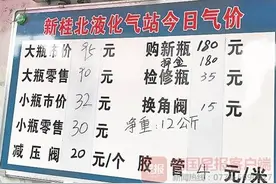 新桂北液化气站今日气价
大瓶市价 95 元 购新瓶 180 元
押金 180
大瓶零售 90 元 检修瓶 35 元
小瓶市价 32 元 换角阀 15 元
小瓶零售 30 元 净重：12公斤
减压阀 20 元/个 胶管 4 元/米